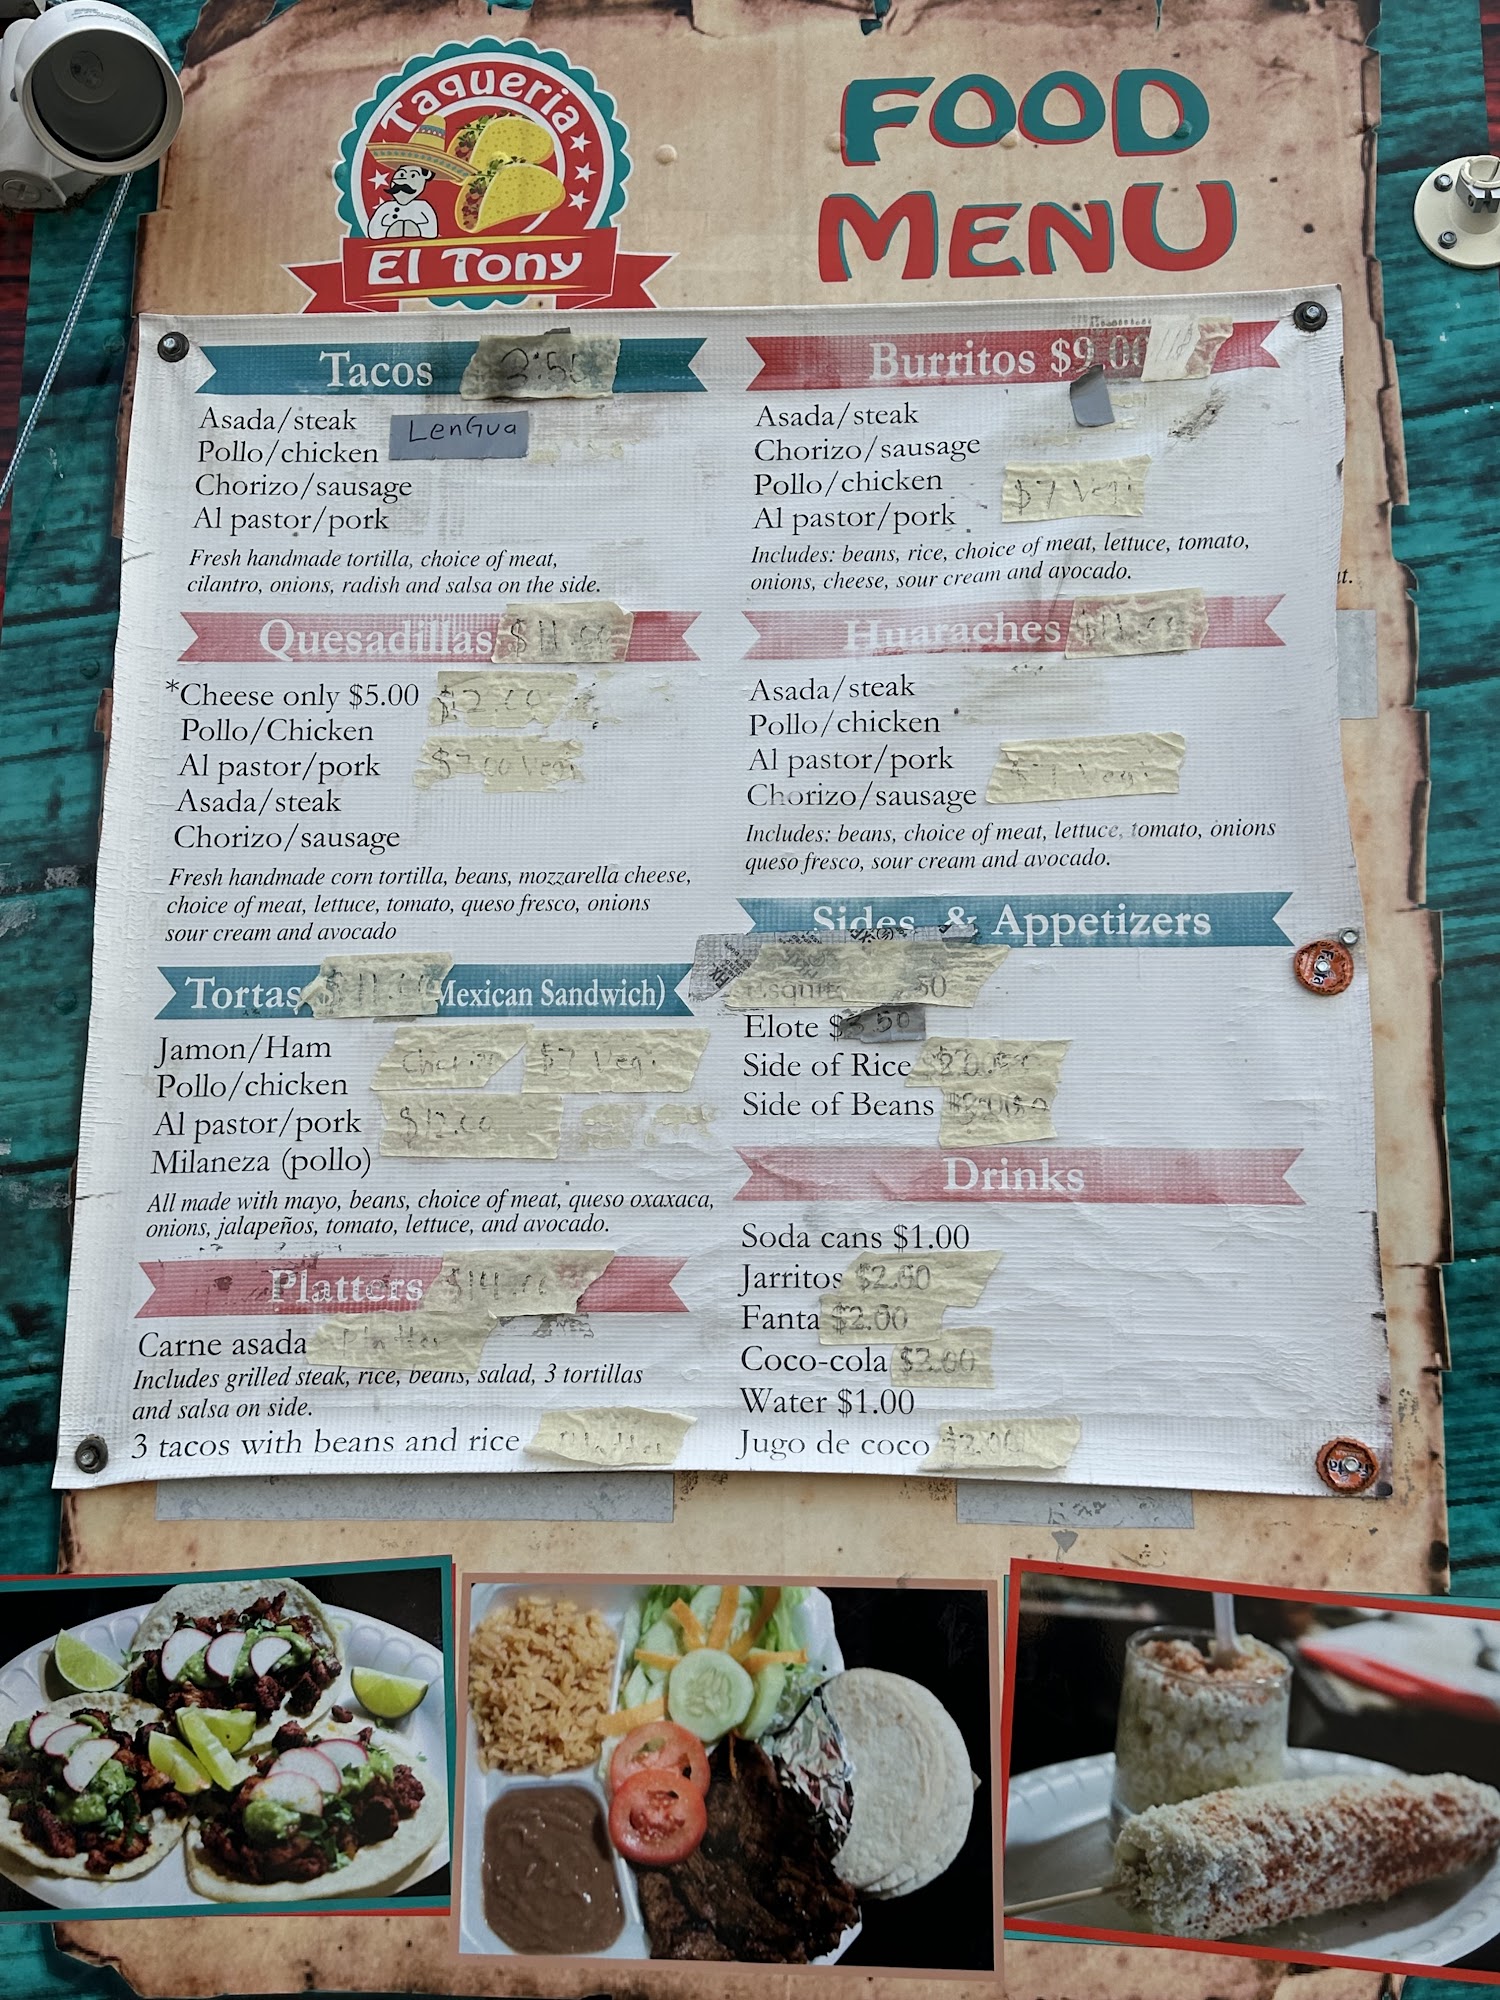 Taqueria
El Tony
FOOD
MENU
Tacos 2:50
Asada/steak
LenGua
Pollo/chicken
Chorizo/sausage
Al pastor/pork
Fresh handmade tortilla, choice of meat,
cilantro, onions, radish and salsa on the side.
Quesadillas $11.00
*Cheese only $5.00
Pollo/Chicken
Al pastor/pork $7.00 Vegi
Asada/steak
Chorizo/sausage
Fresh handmade corn tortilla, beans, mozzarella cheese,
choice of meat, lettuce, tomato, queso fresco, onions
sour cream and avocado
Tortas (Mexican Sandwich)
Jamon/Ham $7 Vegi
Pollo/chicken
Al pastor/pork $12.00
Milaneza (pollo)
All made with mayo, beans, choice of meat, queso oxaxaca,
onions, jalapeños, tomato, lettuce, and avocado.
Platters
Carne asada
Includes grilled steak, rice, beans, salad, 3 tortillas
and salsa on side.
3 tacos with beans and rice
Burritos $9.00
Asada/steak
Chorizo/sausage
Pollo/chicken $7 Vegi
Al pastor/pork
Includes: beans, rice, choice of meat, lettuce, tomato,
onions, cheese, sour cream and avocado.
Huaraches
Asada/steak
Pollo/chicken
Al pastor/pork $7 Vegi
Chorizo/sausage
Includes: beans, choice of meat, lettuce, tomato, onions
queso fresco, sour cream and avocado.
Sides & Appetizers
Elote $3.50
Side of Rice
Side of Beans
Drinks
Soda cans $1.00
Jarritos
Fanta $2.00
Coco-cola
Water $1.00
Jugo de coco $2.00